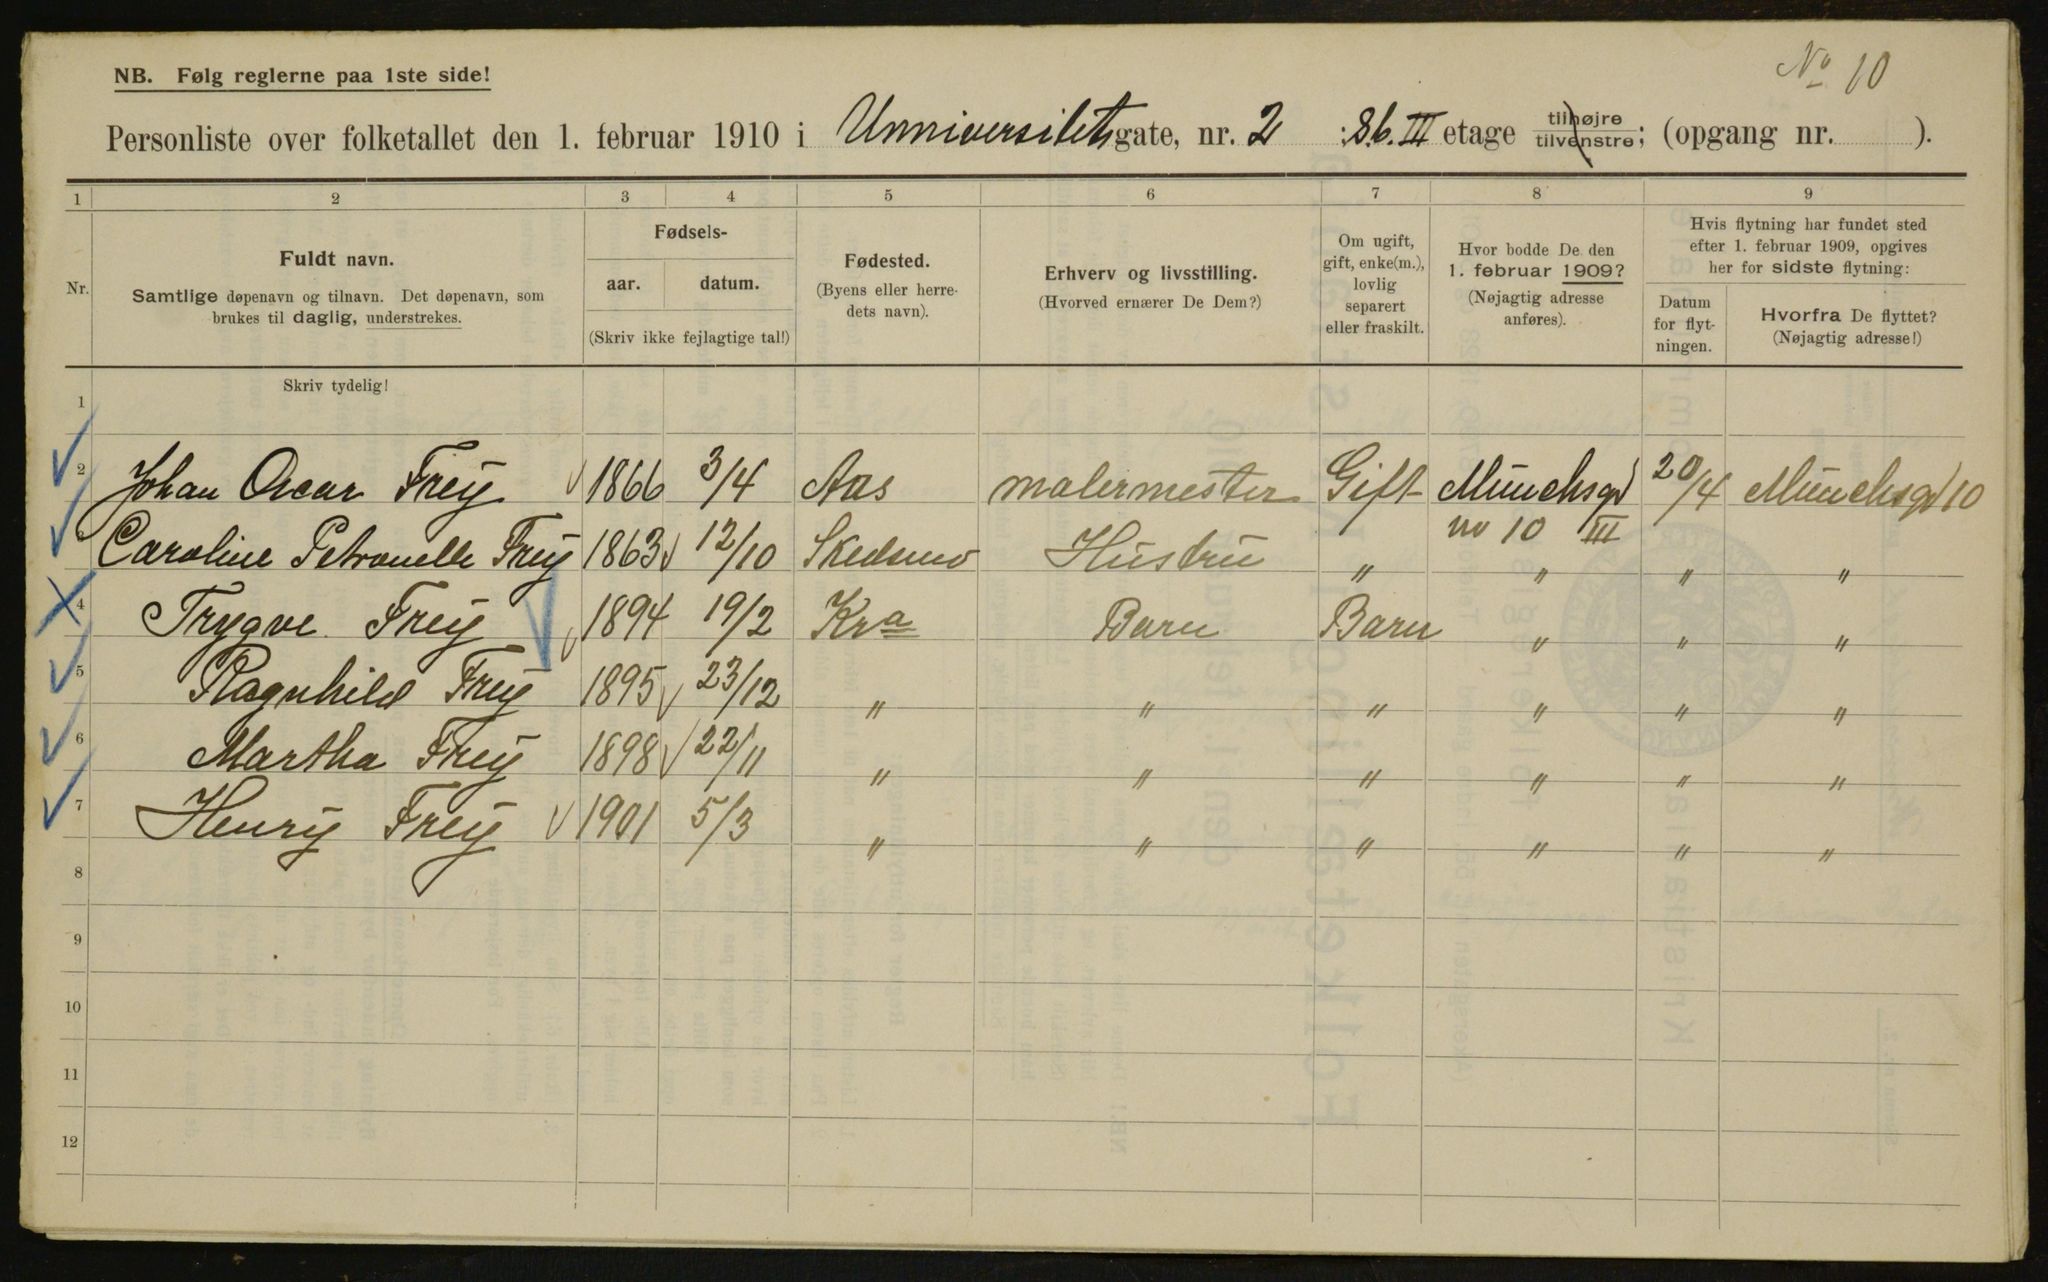 No 10
NB. Følg reglerne paa 1ste side!
Personliste over folketallet den 1. februar 1910 i Unniversitetsgate, nr. 2 : S.b. III etage tilhøjre tilvenstre; (opgang nr. ).
1 2 3 4 5 6 7 8 9
Nr. Fuldt navn. Samtlige døpenavn og tilnavn. Det døpenavn, som brukes til daglig, understrekes.
Fødsels- aar. datum. (Skriv ikke fejlagtige tal!)
Fødested. (Byens eller herredets navn).
Erhverv og livsstilling. (Hvorved ernærer De Dem?)
Om ugift, gift, enke(m.), lovlig separert eller fraskilt.
Hvor bodde De den 1. februar 1909? (Nøjagtig adresse anføres).
Hvis flytning har fundet sted efter 1. februar 1909, opgives her for sidste flytning:
Datum for flytningen. Hvorfra De flyttet? (Nøjagtig adresse!)
Skriv tydelig!
1
2 Johan Oscar Frey 1866 3/4 Aas malermester Gift Munchsgd no 10 III 20/4 Munchsgd 10
Caroline Petronelle Frey 1863 12/10 Skedsmo Hustru " " " "
4 Trygve Frey 1894 19/2 Kra Barn Barn " " "
5 Ragnhild Frey 1895 23/12 " " " " " "
6 Martha Frey 1898 22/11 " " " " " "
7 Henry Frey 1901 5/3 " " " " " "
8
9
10
11
12